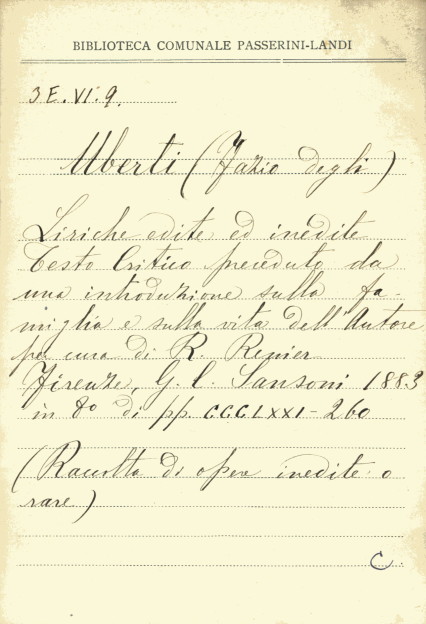 BIBLIOTECA COMUNALE PASSERINI-LANDI
3 E. VI. 9.
Uberti (Fazio degli)
Liriche edite ed inedite
Testo Critico preceduto da
una introduzione sulla fa-
miglia e sulla vita dell'Autore
per cura di R. Renier
Firenze, G. C. Sansoni 1883
in 8º di pp. CCCLXXI-260
(Raccolta di opere inedite o
rare)
C.